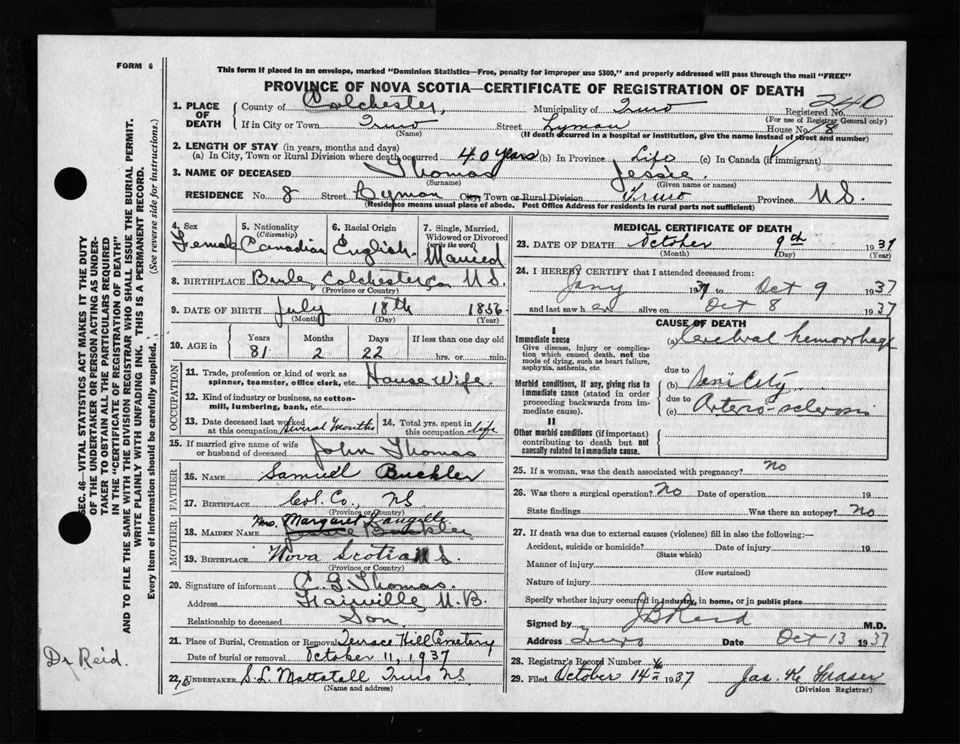 FORM 6
This form if placed in an envelope, marked "Dominion Statistics—Free, penalty for improper use $300," and properly addressed will pass through the mail "FREE"
PROVINCE OF NOVA SCOTIA—CERTIFICATE OF REGISTRATION OF DEATH
240
1. PLACE OF DEATH County of Colchester, Municipality of Truro Registered No.
(For use of Registrar General only)
If in City or Town Truro Street Lyman House No. 8
(Name) (If death occurred in a hospital or institution, give the name instead of street and number)
2. LENGTH OF STAY (in years, months and days)
(a) In City, Town or Rural Division where death occurred 40 years (b) In Province Life (c) In Canada (if immigrant)
3. NAME OF DECEASED Thomas Jessie.
(Surname) (Given name or names)
RESIDENCE No. 8 Street Lyman City, Town or Rural Division Truro Province N.S.
(Residence means usual place of abode. Post Office Address for residents in rural parts not sufficient)
4. Sex 5. Nationality (Citizenship) 6. Racial Origin 7. Single, Married, Widowed or Divorced (write the word)
Female Canadian English Married
8. BIRTHPLACE Colchester Co N.S.
(Province or Country)
9. DATE OF BIRTH July 18th 1856
(Month) (Day) (Year)
10. AGE in Years Months Days If less than one day old
81 2 22 hrs. or min.
OCCUPATION
11. Trade, profession or kind of work as spinner, teamster, office clerk, etc. House Wife.
12. Kind of industry or business, as cotton-mill, lumbering, bank, etc.
13. Date deceased last worked at this occupation Several Months 14. Total yrs. spent in this occupation life
15. If married give name of wife or husband of deceased John Thomas
FATHER
16. NAME Samuel Buckler
17. BIRTHPLACE Col. Co., NS
(Province or Country)
MOTHER
Mrs. Margaret
18. MAIDEN NAME Buckler
19. BIRTHPLACE Nova Scotia N.S.
(Province or Country)
20. Signature of informant C. G. Thomas.
Address Fairville, N.B.
Relationship to deceased Son
21. Place of Burial, Cremation or Removal Terrace Hill Cemetery
Date of burial or removal October 11, 1937
22. UNDERTAKER S. L. Mattatall Truro NS.
(Name and address)
MEDICAL CERTIFICATE OF DEATH
23. DATE OF DEATH October 9th 1937
(Month) (Day) (Year)
24. I HEREBY CERTIFY that I attended deceased from:
Jany 1937 to Oct 9 1937
and last saw her alive on Oct 8 1937
CAUSE OF DEATH
I
Immediate cause (a) Cerebral hemorrhage
Give disease, injury or complication which caused death, not the mode of dying, such as heart failure, asphyxia, asthenia, etc.
due to
Morbid conditions, if any, giving rise to immediate cause (stated in order proceeding backwards from immediate cause).
(b) Senility
due to
(c) Arterio-sclerosis
II
Other morbid conditions (if important) contributing to death but not causally related to immediate cause.
25. If a woman, was the death associated with pregnancy? No
26. Was there a surgical operation? No Date of operation 19
State findings Was there an autopsy? No
27. If death was due to external causes (violence) fill in also the following:—
Accident, suicide or homicide? Date of injury 19
(State which)
Manner of injury
(How sustained)
Nature of injury
Specify whether injury occurred in industry, in home, or in public place
Signed by J B Reid M.D.
Address Truro Date Oct 13 1937
28. Registrar's Record Number
29. Filed October 14 1937 Jas. K. Fraser
(Division Registrar)
Dr Reid.
SEC. 46—VITAL STATISTICS ACT MAKES IT THE DUTY
OF THE UNDERTAKER OR PERSON ACTING AS UNDERTAKER TO OBTAIN ALL THE PARTICULARS REQUIRED
IN THE "CERTIFICATE OF REGISTRATION OF DEATH"
AND TO FILE THE SAME WITH THE DIVISION REGISTRAR WHO SHALL ISSUE THE BURIAL PERMIT.
WRITE PLAINLY WITH UNFADING INK. THIS IS A PERMANENT RECORD.
Every item of information should be carefully supplied. (See reverse side for instructions.)